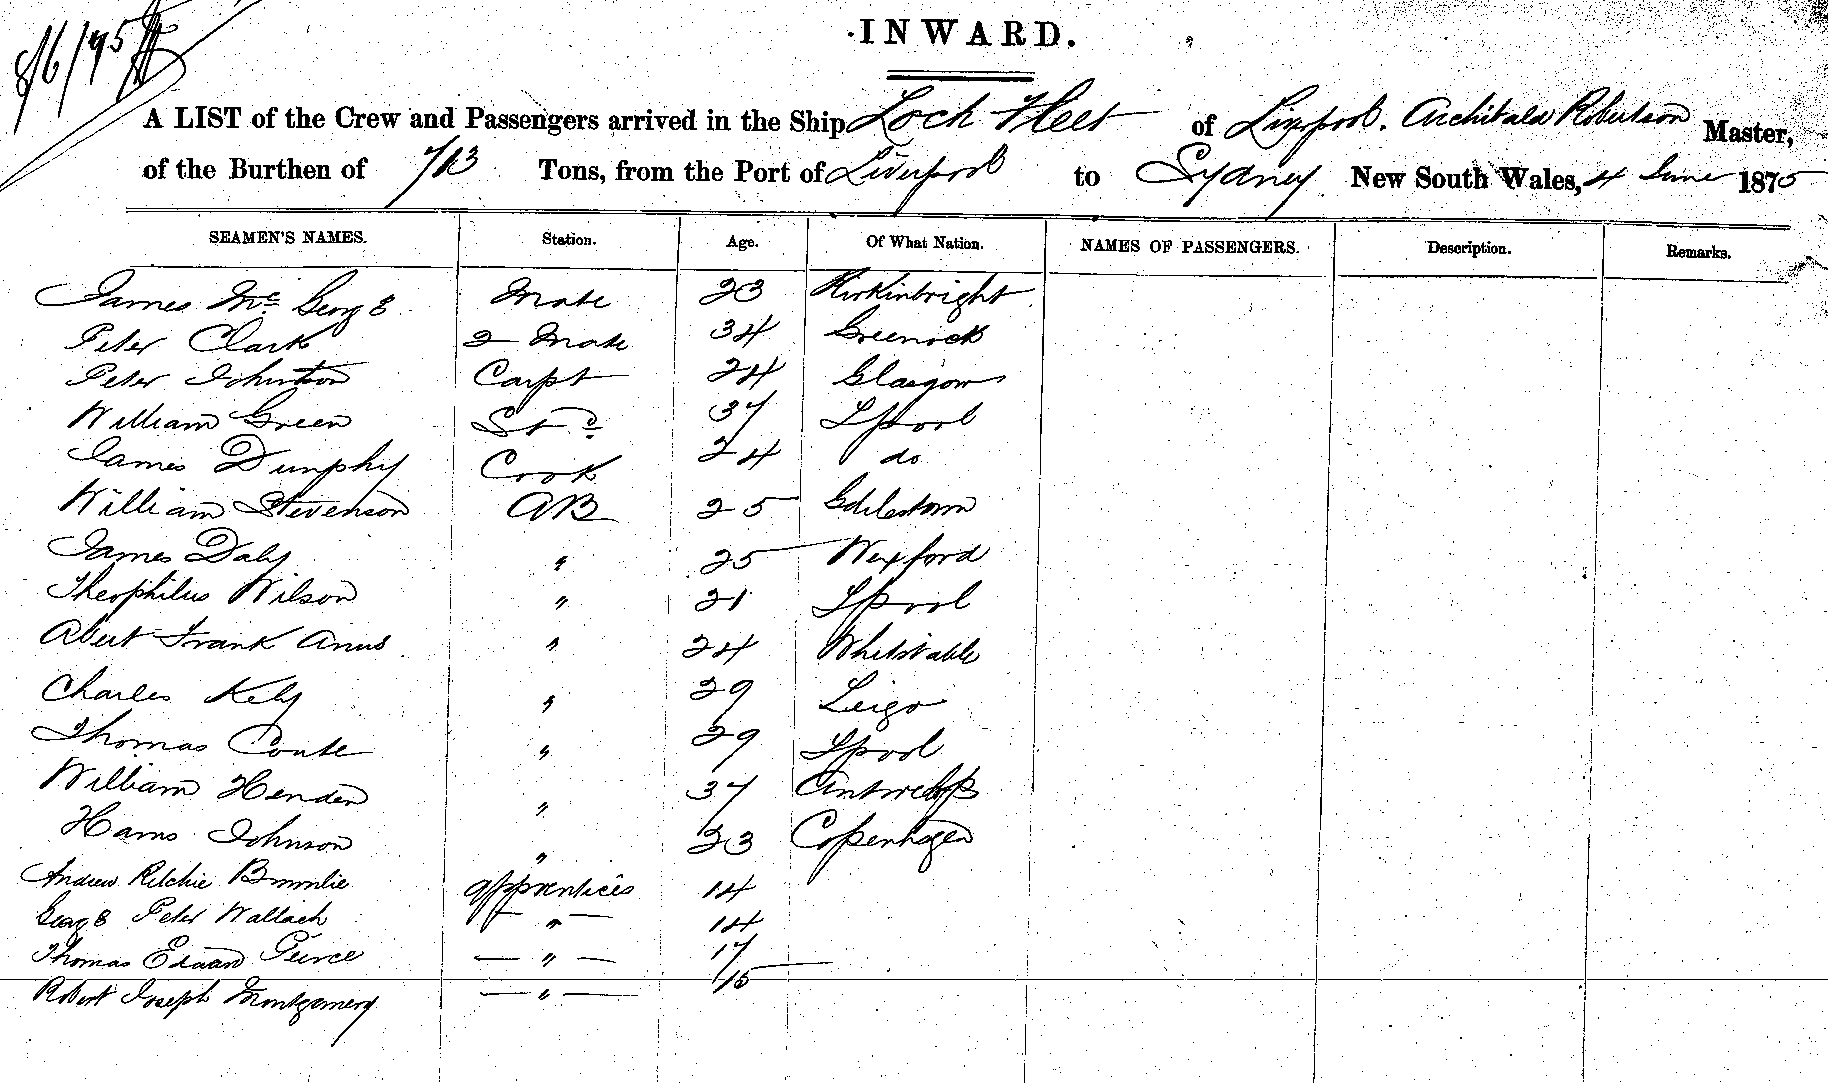 INWARD.
A LIST of the Crew and Passengers arrived in the Ship Loch Fleet of Liverpool. Archibald Robertson Master,
of the Burthen of 713 Tons, from the Port of Liverpool to Sydney New South Wales, 4 June 1875
SEAMEN'S NAMES. Station. Age. Of What Nation. NAMES OF PASSENGERS. Description. Remarks.
James Mc George Mate 23 Kirkinbright
Peter Clark 2 Mate 34 Greenock
Peter Johnston Carpt 24 Glasgow
William Green Std 37 Lpool
James Dunphy Cook 24 do
William Stevenson AB 25
James Daly " 25 Wexford
Theophilus Wilson " 21 Lpool
Albert Frank " 24 Whitstable
Charles Kely " 29 Leigo
Thomas " 29 Lpool
William Henden " 37 Antwerp
Hams Johnson " 23 Copenhagen
Andrew Ritchie apprentices 14
George Peter Wallach — " — 14
Thomas Edward Peirce — " — 17
Robert Joseph Montgomery — " — 15